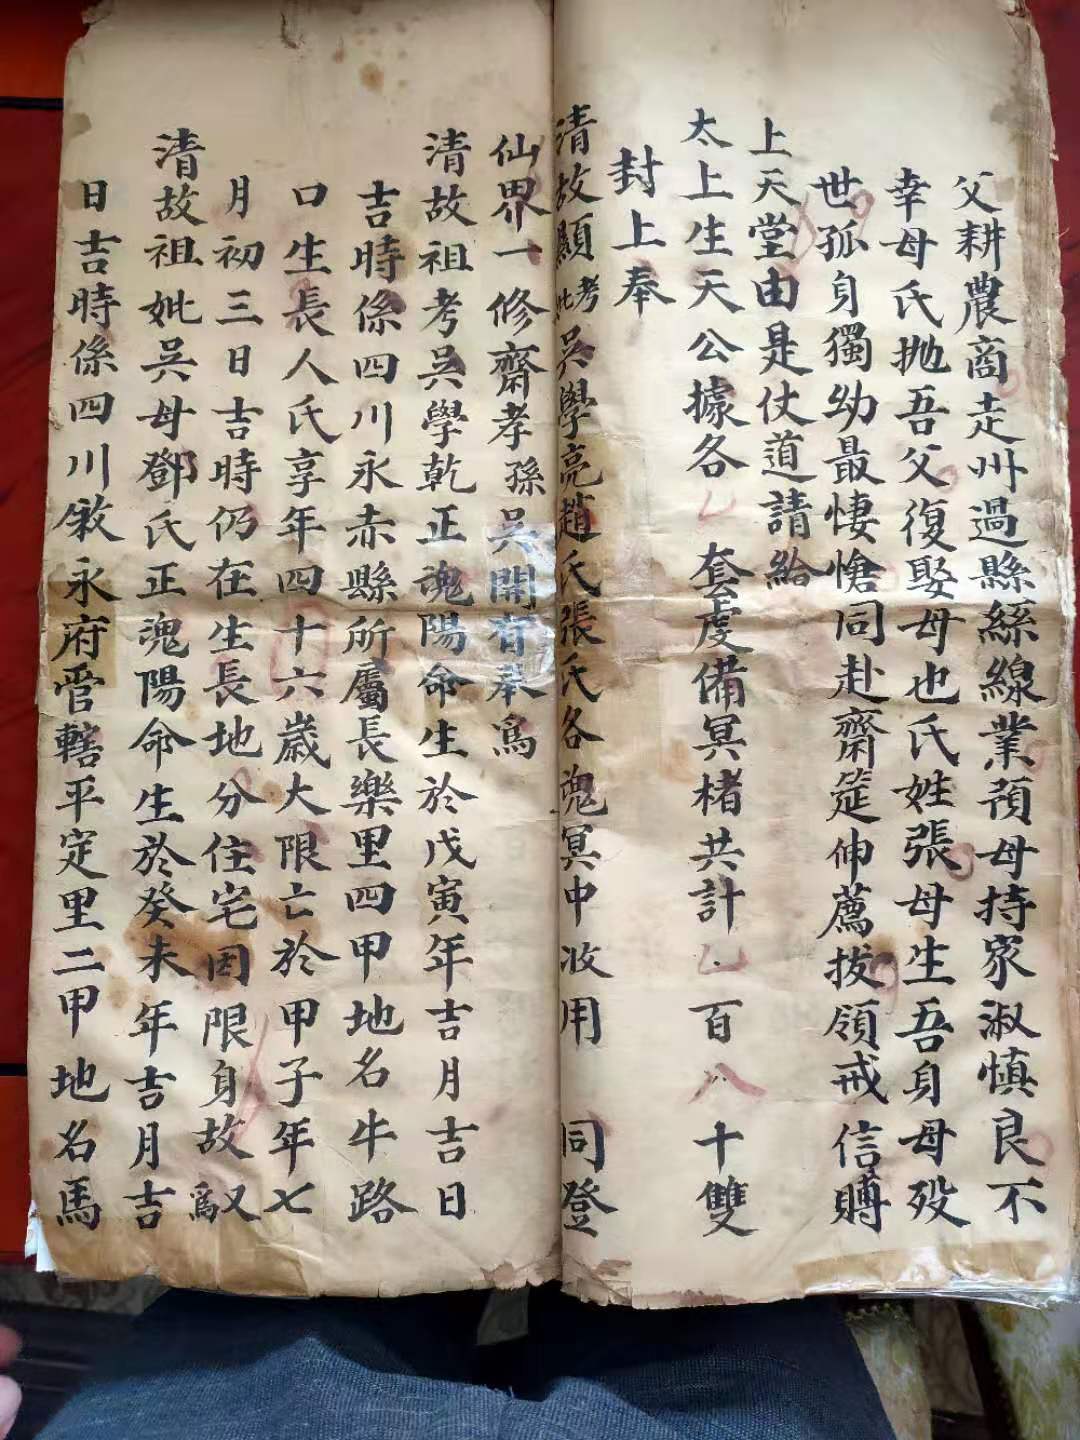 父耕農商走州過縣絲線業預母持家淑慎良不
幸母氏抛吾父復娶母也氏姓張母生吾身母殁
世孤身獨幼最悽愴同赴齋筵伸薦拔領戒信賻
上天堂由是仗道請給
太上生天公據各乙套虔備冥楮共計乙百八十雙
封上奉
清故顯考妣吳學亮趙氏張氏各魂冥中收用 同登
仙界一修齋孝孫吳開有奉為
清故祖考吳學乾正魂陽命生於戊寅年吉月吉日
吉時係四川永赤縣所屬長樂里四甲地名牛路
口生長人氏享年四十六歲大限亡於甲子年七
月初三日吉時仍在生長地分住宅因限身故馭為
清故祖妣吳母鄧氏正魂陽命生於癸未年吉月吉
日吉時係四川敘永府管轄平定里二甲地名馬